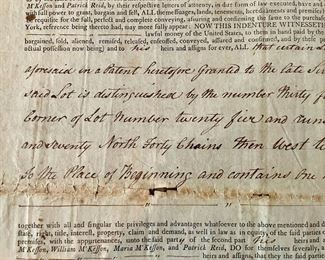 M'Kesson and Patrick Reid, by their respective letters of attorney, in due form of law executed, have and
with full power to grant, bargain and sell, ALL the messuages, lands, tenements, hereditaments and premises
for the full, perfect and complete conveying, assuring and confirming the same to the purchaser
York, reference being thereto had, may more fully appear: NOW THIS INDENTURE WITNESSETH
lawful money of the United States, to them in hand paid by the
bargained, sold, aliened, remised, released, enfeoffed, conveyed, assured and confirmed, and by these
actual possession now being) and to his heirs and assigns for ever, ALL that certain
aforesaid in a Patent heretofore Granted to the Late
Said Lot is distinguished by the number thirty
Corner of Lot Number twenty five and runs
and seventy North Forty Chains then West
to the Place of Beginning and contains One
together with all and singular the privileges and advantages whatsoever to the above mentioned and
state, right, title, interest, property, claim and demand, as well in law as in the said parties
premises, with the appurtenances, unto the said party of the second part his heirs and
M'Kesson, William M'Kesson, Maria M'Kesson, and Patrick Reid, DO for themselves severally,
heirs and assigns, that they the said